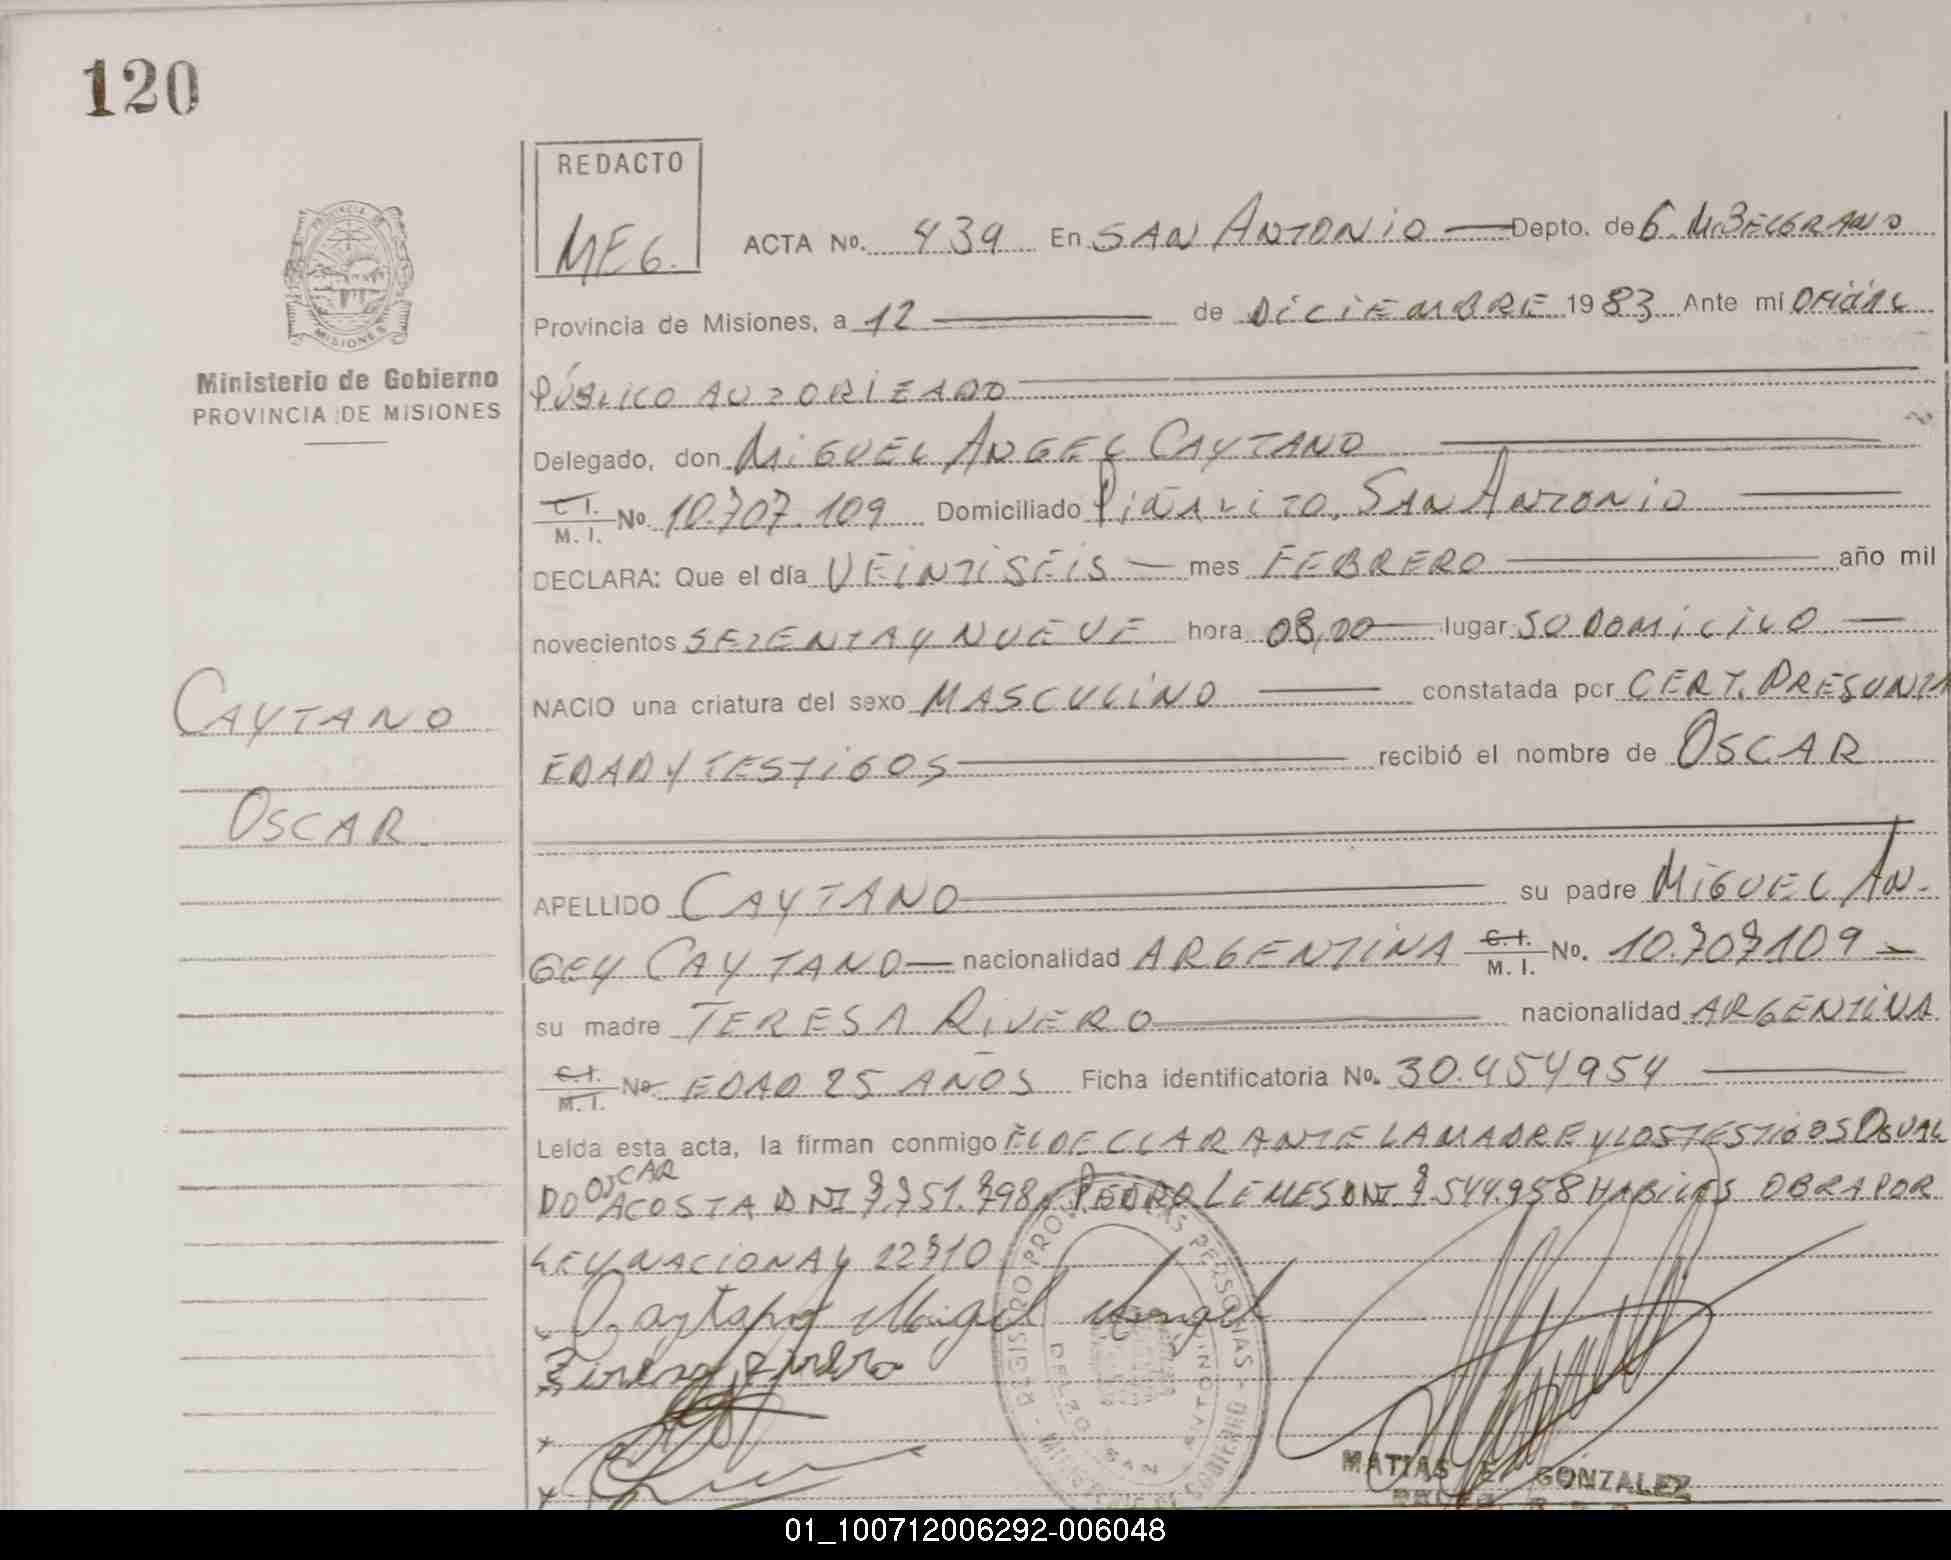 120
REDACTO
MEG.
ACTA No. 439 En SAN ANTONIO Depto. de G. M. BELGRANO
PROVINCIA DE
MISIONES
Provincia de Misiones, a 12 de DICIEMBRE 1983 Ante mi OFICIAL
Ministerio de Gobierno
PROVINCIA DE MISIONES
PÚBLICO AUTORIZADO
Delegado, don MIGUEL ANGEL CAYTANO
C. I.
M. I. No. 10.707.109 Domiciliado PIÑALITO, SAN ANTONIO
DECLARA: Que el día VEINTISEIS mes FEBRERO año mil
novecientos SETENTA Y NUEVE hora 08,00 lugar SU DOMICILO
NACIO una criatura del sexo MASCULINO constatada por CERT. PRESUNTA
CAYTANO
EDAD Y TESTIGOS recibió el nombre de OSCAR
OSCAR
APELLIDO CAYTANO su padre MIGUEL AN-
GEL CAYTANO nacionalidad ARGENTINA C. I.
M. I. No. 10.707109
su madre TERESA RIVERO nacionalidad ARGENTINA
C. I.
M. I. No. EDAD 25 AÑOS Ficha identificatoria No. 30.454954
Leída esta acta, la firman conmigo EL DECLARANTE LA MADRE Y LOS TESTIGOS OSVAL
DO OSCAR ACOSTA DNI 7.751.798, PEDRO LEMES DNI. 7.544.958 HABILES OBRA POR
LEY NACIONAL 22710
Caytano Miguel Angel
REGISTRO PROV. PERSONAS
MINISTERIO DE GOBIERNO
MATIAS E. GONZALEZ
01_100712006292-006048